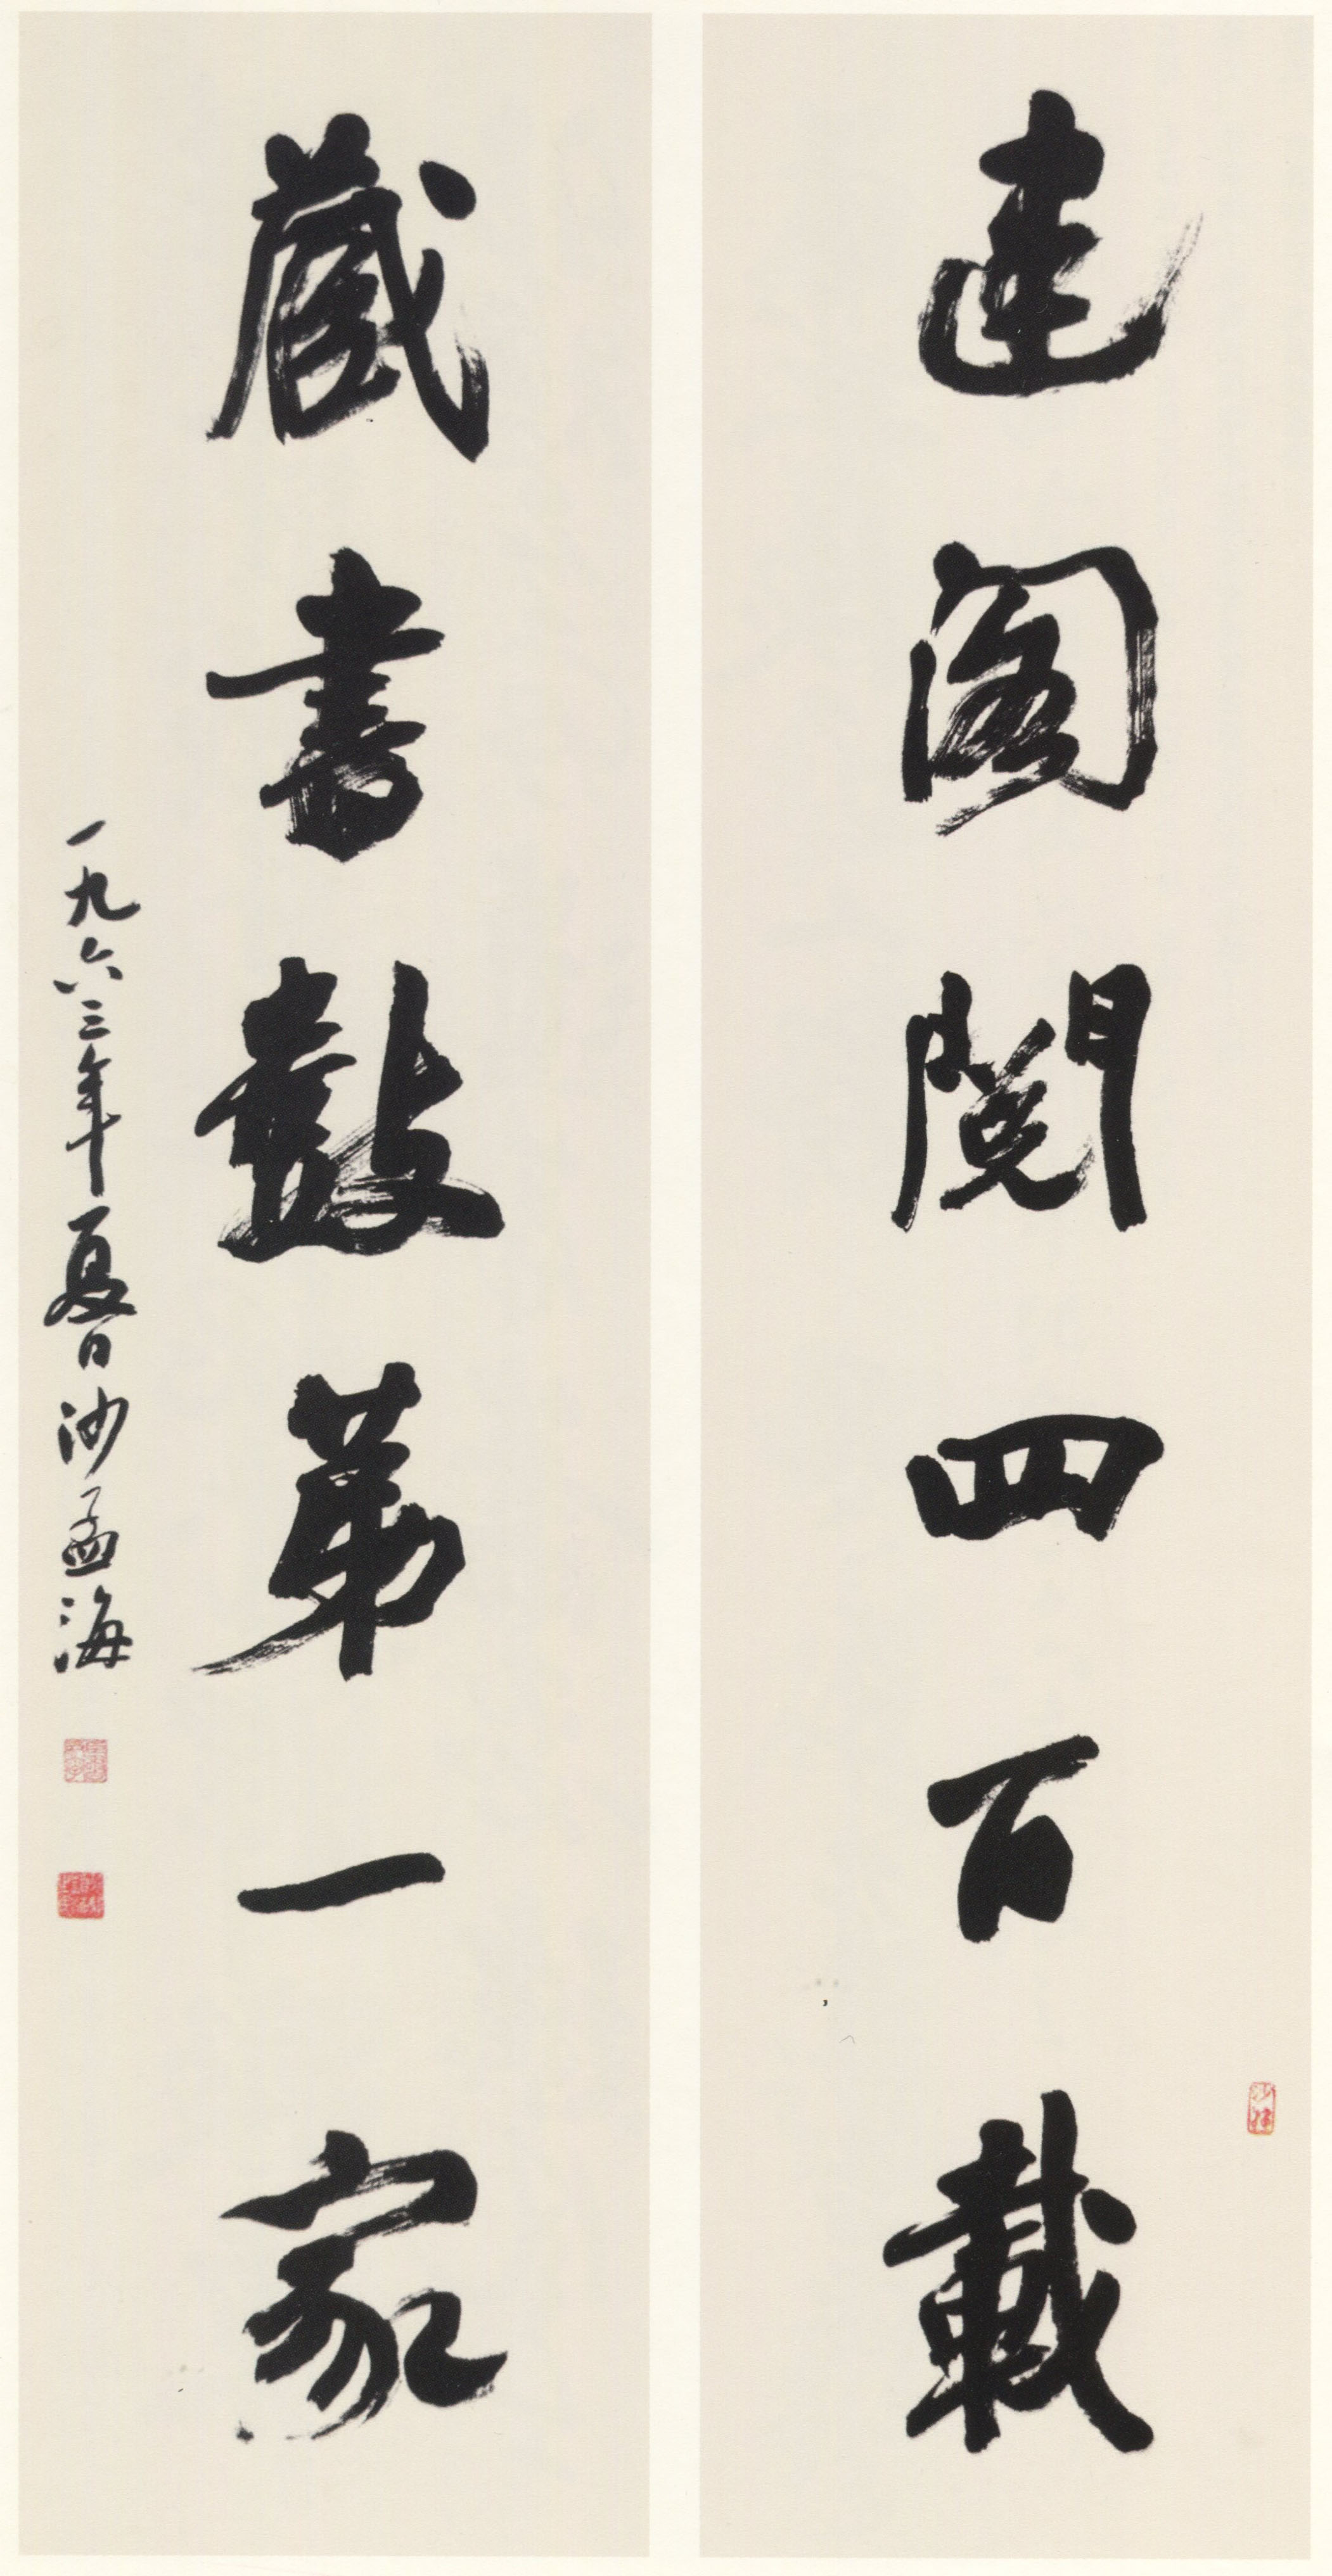 建阁阅四百载
藏書數第一家
一九六三年夏日沙孟海